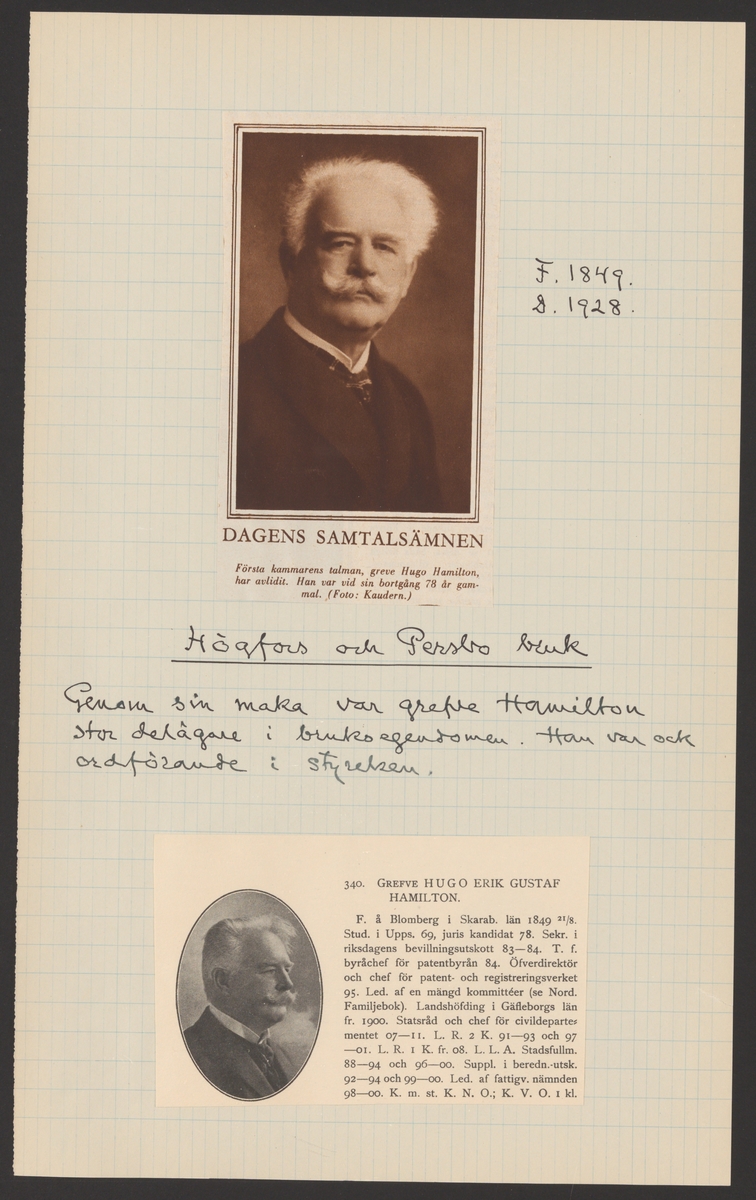 F. 1849.
D. 1928.
DAGENS SAMTALSÄMNEN
Första kammarens talman, greve Hugo Hamilton,
har avlidit. Han var vid sin bortgång 78 år gam-
mal. (Foto: Kaudern.)
Högfors och Persbo bruk
Genom sin maka var grefve Hamilton
stor delägare i bruksegendomen. Han var ock
ordförande i styrelsen.
340. GREFVE HUGO ERIK GUSTAF
HAMILTON.
F. å Blomberg i Skarab. län 1849 21/8.
Stud. i Upps. 69, juris kandidat 78. Sekr. i
riksdagens bevillningsutskott 83—84. T. f.
byråchef för patentbyrån 84. Öfverdirektör
och chef för patent- och registreringsverket
95. Led. af en mängd kommittéer (se Nord.
Familjebok). Landshöfding i Gäfleborgs län
fr. 1900. Statsråd och chef för civildeparte-
mentet 07—11. L. R. 2 K. 91—93 och 97
—01. L. R. 1 K. fr. 08. L. L. A. Stadsfullm.
88—94 och 96—00. Suppl. i beredn.-utsk.
92—94 och 99—00. Led. af fattigv. nämnden
98—00. K. m. st. K. N. O.; K. V. O. 1 kl.